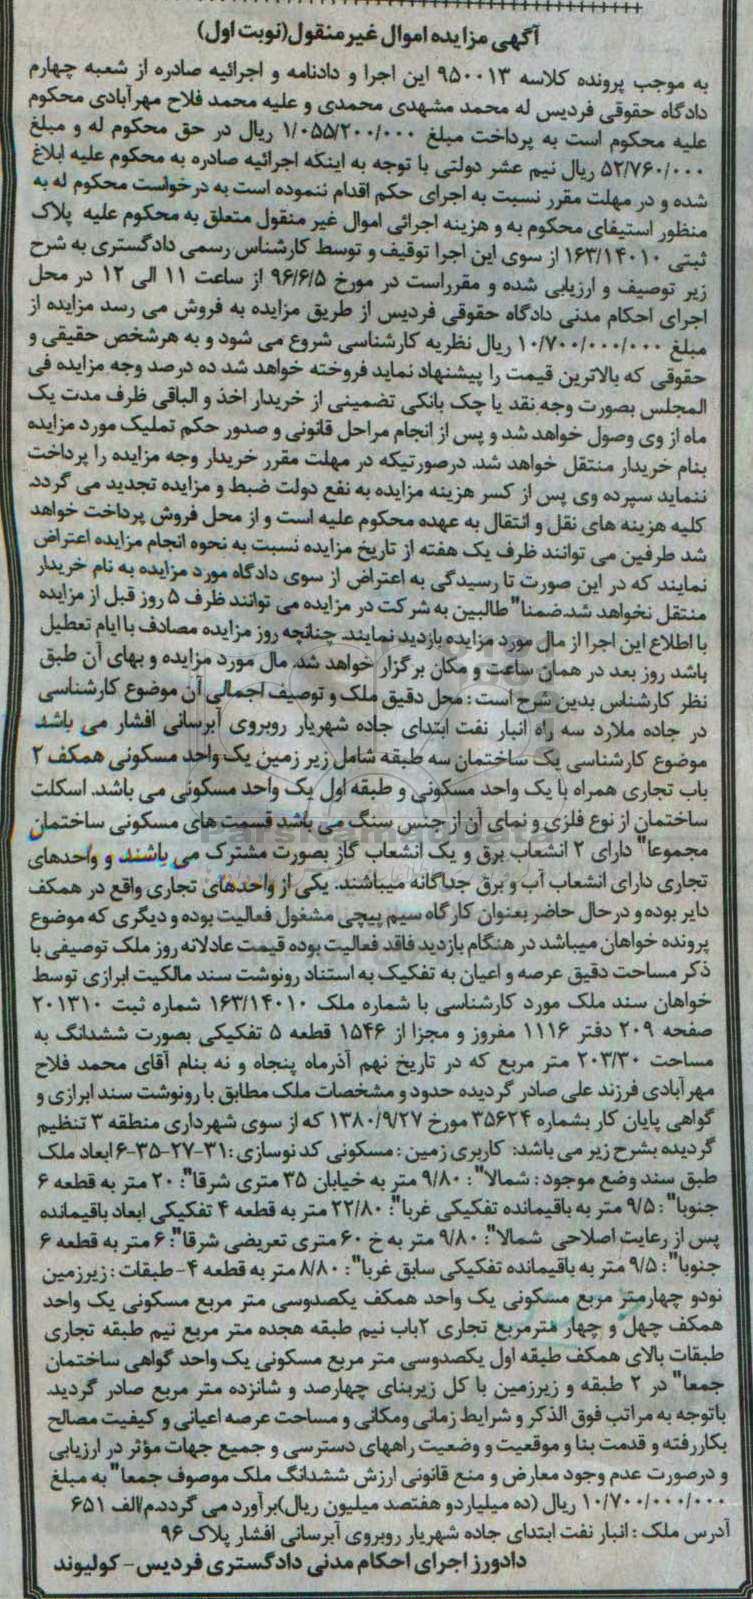 آگهی مزایده اموال غیرمنقول(نوبت اول)
به موجب پرونده کلاسه ۹۵۰۰۱۳ این اجرا و دادنامه و اجرائیه صادره از شعبه چهارم
دادگاه حقوقی فردیس له محمد مشهدی محمدی و علیه محمد فلاح مهرآبادی محکوم
علیه محکوم است به پرداخت مبلغ ۱/۰۵۵/۲۰۰/۰۰۰ ریال در حق محکوم له و مبلغ
۵۲/۷۶۰/۰۰۰ ریال نیم عشر دولتی با توجه به اینکه اجرائیه صادره به محکوم علیه ابلاغ
شده و در مهلت مقرر نسبت به اجرای حکم اقدام ننموده است به درخواست محکوم له به
منظور استیفای محکوم به و هزینه اجرائی اموال غیر منقول متعلق به محکوم علیه پلاک
ثبتی ۱۶۳/۱۴۰۱۰ از سوی این اجرا توقیف و توسط کارشناس رسمی دادگستری به شرح
زیر توصیف و ارزیابی شده و مقرراست در مورخ ۹۶/۶/۵ از ساعت ۱۱ الی ۱۲ در محل
اجرای احکام مدنی دادگاه حقوقی فردیس از طریق مزایده به فروش می رسد مزایده از
مبلغ ۱۰/۷۰۰/۰۰۰/۰۰۰ ریال نظریه کارشناسی شروع می شود و به هرشخص حقیقی و
حقوقی که بالاترین قیمت را پیشنهاد نماید فروخته خواهد شد ده درصد وجه مزایده فی
المجلس بصورت وجه نقد یا چک بانکی تضمینی از خریدار اخذ و الباقی ظرف مدت یک
ماه از وی وصول خواهد شد و پس از انجام مراحل قانونی و صدور حکم تملیک مورد مزایده
بنام خریدار منتقل خواهد شد. درصورتیکه در مهلت مقرر خریدار وجه مزایده را پرداخت
ننماید سپرده وی پس از کسر هزینه مزایده به نفع دولت ضبط و مزایده تجدید می گردد.
کلیه هزینه های نقل و انتقال به عهده محکوم علیه است و از محل فروش پرداخت خواهد
شد طرفین می توانند ظرف یک هفته از تاریخ مزایده نسبت به نحوه انجام مزایده اعتراض
نمایند که در این صورت تا رسیدگی به اعتراض از سوی دادگاه مورد مزایده به نام خریدار
منتقل نخواهد شد.ضمنا" طالبین به شرکت در مزایده می توانند ظرف ۵ روز قبل از مزایده
با اطلاع این اجرا از مال مورد مزایده بازدید نمایند. چنانچه روز مزایده مصادف با ایام تعطیل
باشد روز بعد در همان ساعت و مکان برگزار خواهد شد. مال مورد مزایده و بهای آن طبق
نظر کارشناس بدین شرح است : محل دقیق ملک و توصیف اجمالی آن موضوع کارشناسی
در جاده ملارد سه راه انبار نفت ابتدای جاده شهریار روبروی آبرسانی افشار می باشد
موضوع کارشناسی یک ساختمان سه طبقه شامل زیر زمین یک واحد مسکونی همکف ۲
باب تجاری همراه با یک واحد مسکونی و طبقه اول یک واحد مسکونی می باشد. اسکلت
ساختمان از نوع فلزی و نمای آن از جنس سنگ می باشد قسمت های مسکونی ساختمان
مجموعا" دارای ۲ انشعاب برق و یک انشعاب گاز بصورت مشترک می باشند و واحدهای
تجاری دارای انشعاب آب و برق جداگانه میباشند. یکی از واحدهای تجاری واقع در همکف
دایر بوده و درحال حاضر بعنوان کارگاه سیم پیچی مشغول فعالیت بوده و دیگری که موضوع
پرونده خواهان میباشد در هنگام بازدید فاقد فعالیت بوده قیمت عادلانه روز ملک توصیفی با
ذکر مساحت دقیق عرصه و اعیان به تفکیک به استناد رونوشت سند مالکیت ابرازی توسط
خواهان سند ملک مورد کارشناسی با شماره ملک ۱۶۳/۱۴۰۱۰ شماره ثبت ۲۰۱۳۱۰
صفحه ۲۰۹ دفتر ۱۱۱۶ مفروز و مجزا از ۱۵۴۶ قطعه ۵ تفکیکی بصورت ششدانگ به
مساحت ۲۰۳/۳۰ متر مربع که در تاریخ نهم آذرماه پنجاه و نه بنام آقای محمد فلاح
مهرآبادی فرزند علی صادر گردیده حدود و مشخصات ملک مطابق با رونوشت سند ابرازی و
گواهی پایان کار بشماره ۳۵۶۲۴ مورخ ۱۳۸۰/۹/۲۷ که از سوی شهرداری منطقه ۳ تنظیم
گردیده بشرح زیر می باشد: کاربری زمین : مسکونی کد نوسازی :۳۱-۲۷-۳۵-۶ ابعاد ملک
طبق سند وضع موجود : شمالا" : ۹/۸۰ متر به خیابان ۳۵ متری شرقا": ۲۰ متر به قطعه ۶
جنوبا" : ۹/۵ متر به باقیمانده تفکیکی غربا": ۲۲/۸۰ متر به قطعه ۴ تفکیکی ابعاد باقیمانده
پس از رعایت اصلاحی شمالا": ۹/۸۰ متر به خ ۶۰ متری تعریضی شرقا": ۶ متر به قطعه ۶
جنوبا": ۹/۵ متر به باقیمانده تفکیکی سابق غربا": ۸/۸۰ متر به قطعه ۴- طبقات : زیرزمین
نودو چهارمتر مربع مسکونی یک واحد همکف یکصدوسی متر مربع مسکونی یک واحد
همکف چهل و چهار مترمربع تجاری ۲باب نیم طبقه هجده متر مربع نیم طبقه تجاری
طبقات بالای همکف طبقه اول یکصدوسی متر مربع مسکونی یک واحد گواهی ساختمان
جمعا" در ۲ طبقه و زیرزمین با کل زیربنای چهارصد و شانزده متر مربع صادر گردید.
باتوجه به مراتب فوق الذکر و شرایط زمانی ومکانی و مساحت عرصه اعیانی و کیفیت مصالح
بکاررفته و قدمت بنا و موقعیت و وضعیت راههای دسترسی و جمیع جهات مؤثر در ارزیابی
و درصورت عدم وجود معارض و منع قانونی ارزش ششدانگ ملک موصوف جمعا" به مبلغ
۱۰/۷۰۰/۰۰۰/۰۰۰ ریال (ده میلیاردو هفتصد میلیون ریال)برآورد می گردد.م/الف ۶۵۱
آدرس ملک : انبار نفت ابتدای جاده شهریار روبروی آبرسانی افشار پلاک ۹۶
دادورز اجرای احکام مدنی دادگستری فردیس- کولیوند